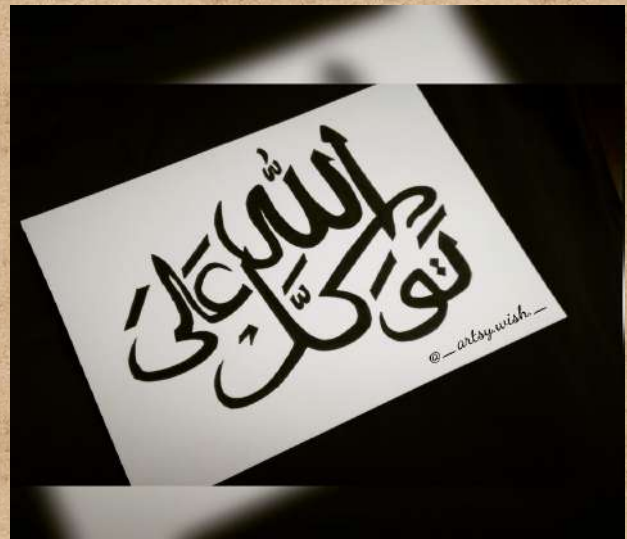 تَوَكَّل
عَلىَ
اللّٰه
@_artsy.wish._